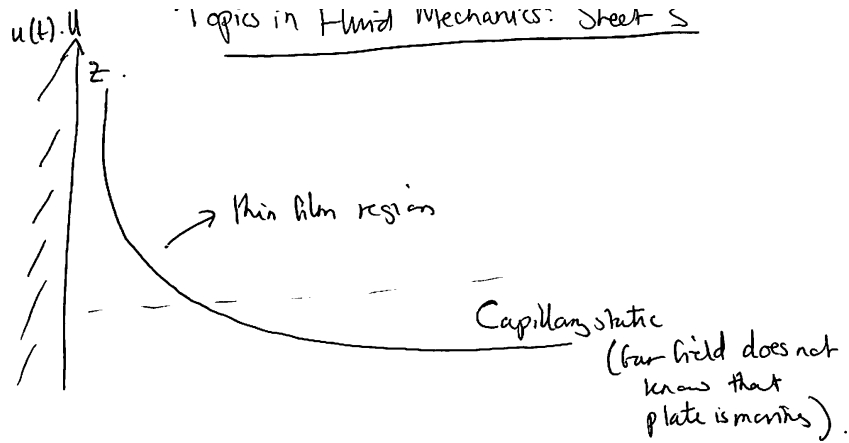 Topics in Fluid Mechanics: Sheet 5
u(t). U
Z.
thin film region
Capillary static
(far field does not
know that
plate is moving).